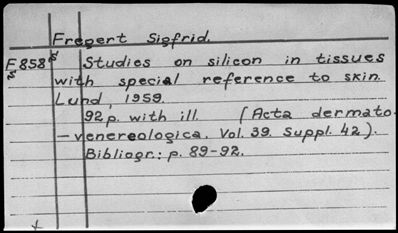 Fregert Sigfrid.
F858s Studies on silicon in tissues
with special reference to skin.
Lund, 1959.
92 p. with ill. (Acta dermato-
-venereologica. Vol. 39. Suppl. 42).
Bibliogr.: p. 89-92.